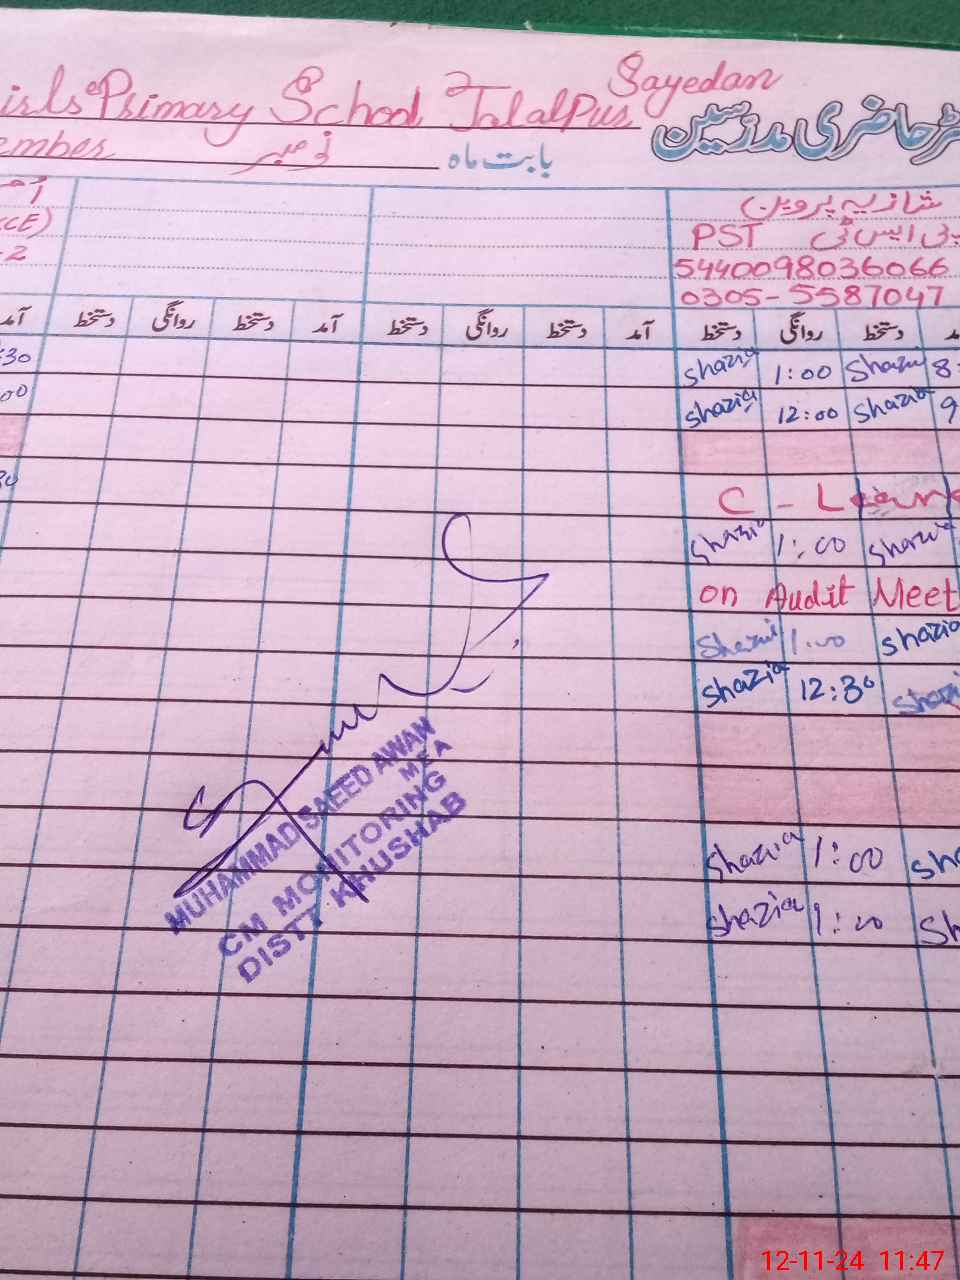 irls Primary School JalalPur Sayedan
رجسٹر حاضری مدرسین
ember نومبر بابت ماہ
شازیہ پروین
CE)
PST پی ایس ٹی
-2
5440098036066
0305-5587047
آمد دستخط روانگی دستخط آمد دستخط روانگی دستخط آمد دستخط روانگی دستخط
:30 shazia 1:00 Shazia 8:
00 shazia 12:00 Shazia 9
30 C - Leave
shazia 1:00 shazia
on Audit Meet
Shazia 1:00 shazia
shazia 12:30 shazi
shazia 1:00 sha
shazia 1:00 Sh
MUHAMMAD SAEED AWAN
MEA
CM MONITORING
DISTT KHUSHAB
12-11-24 11:47